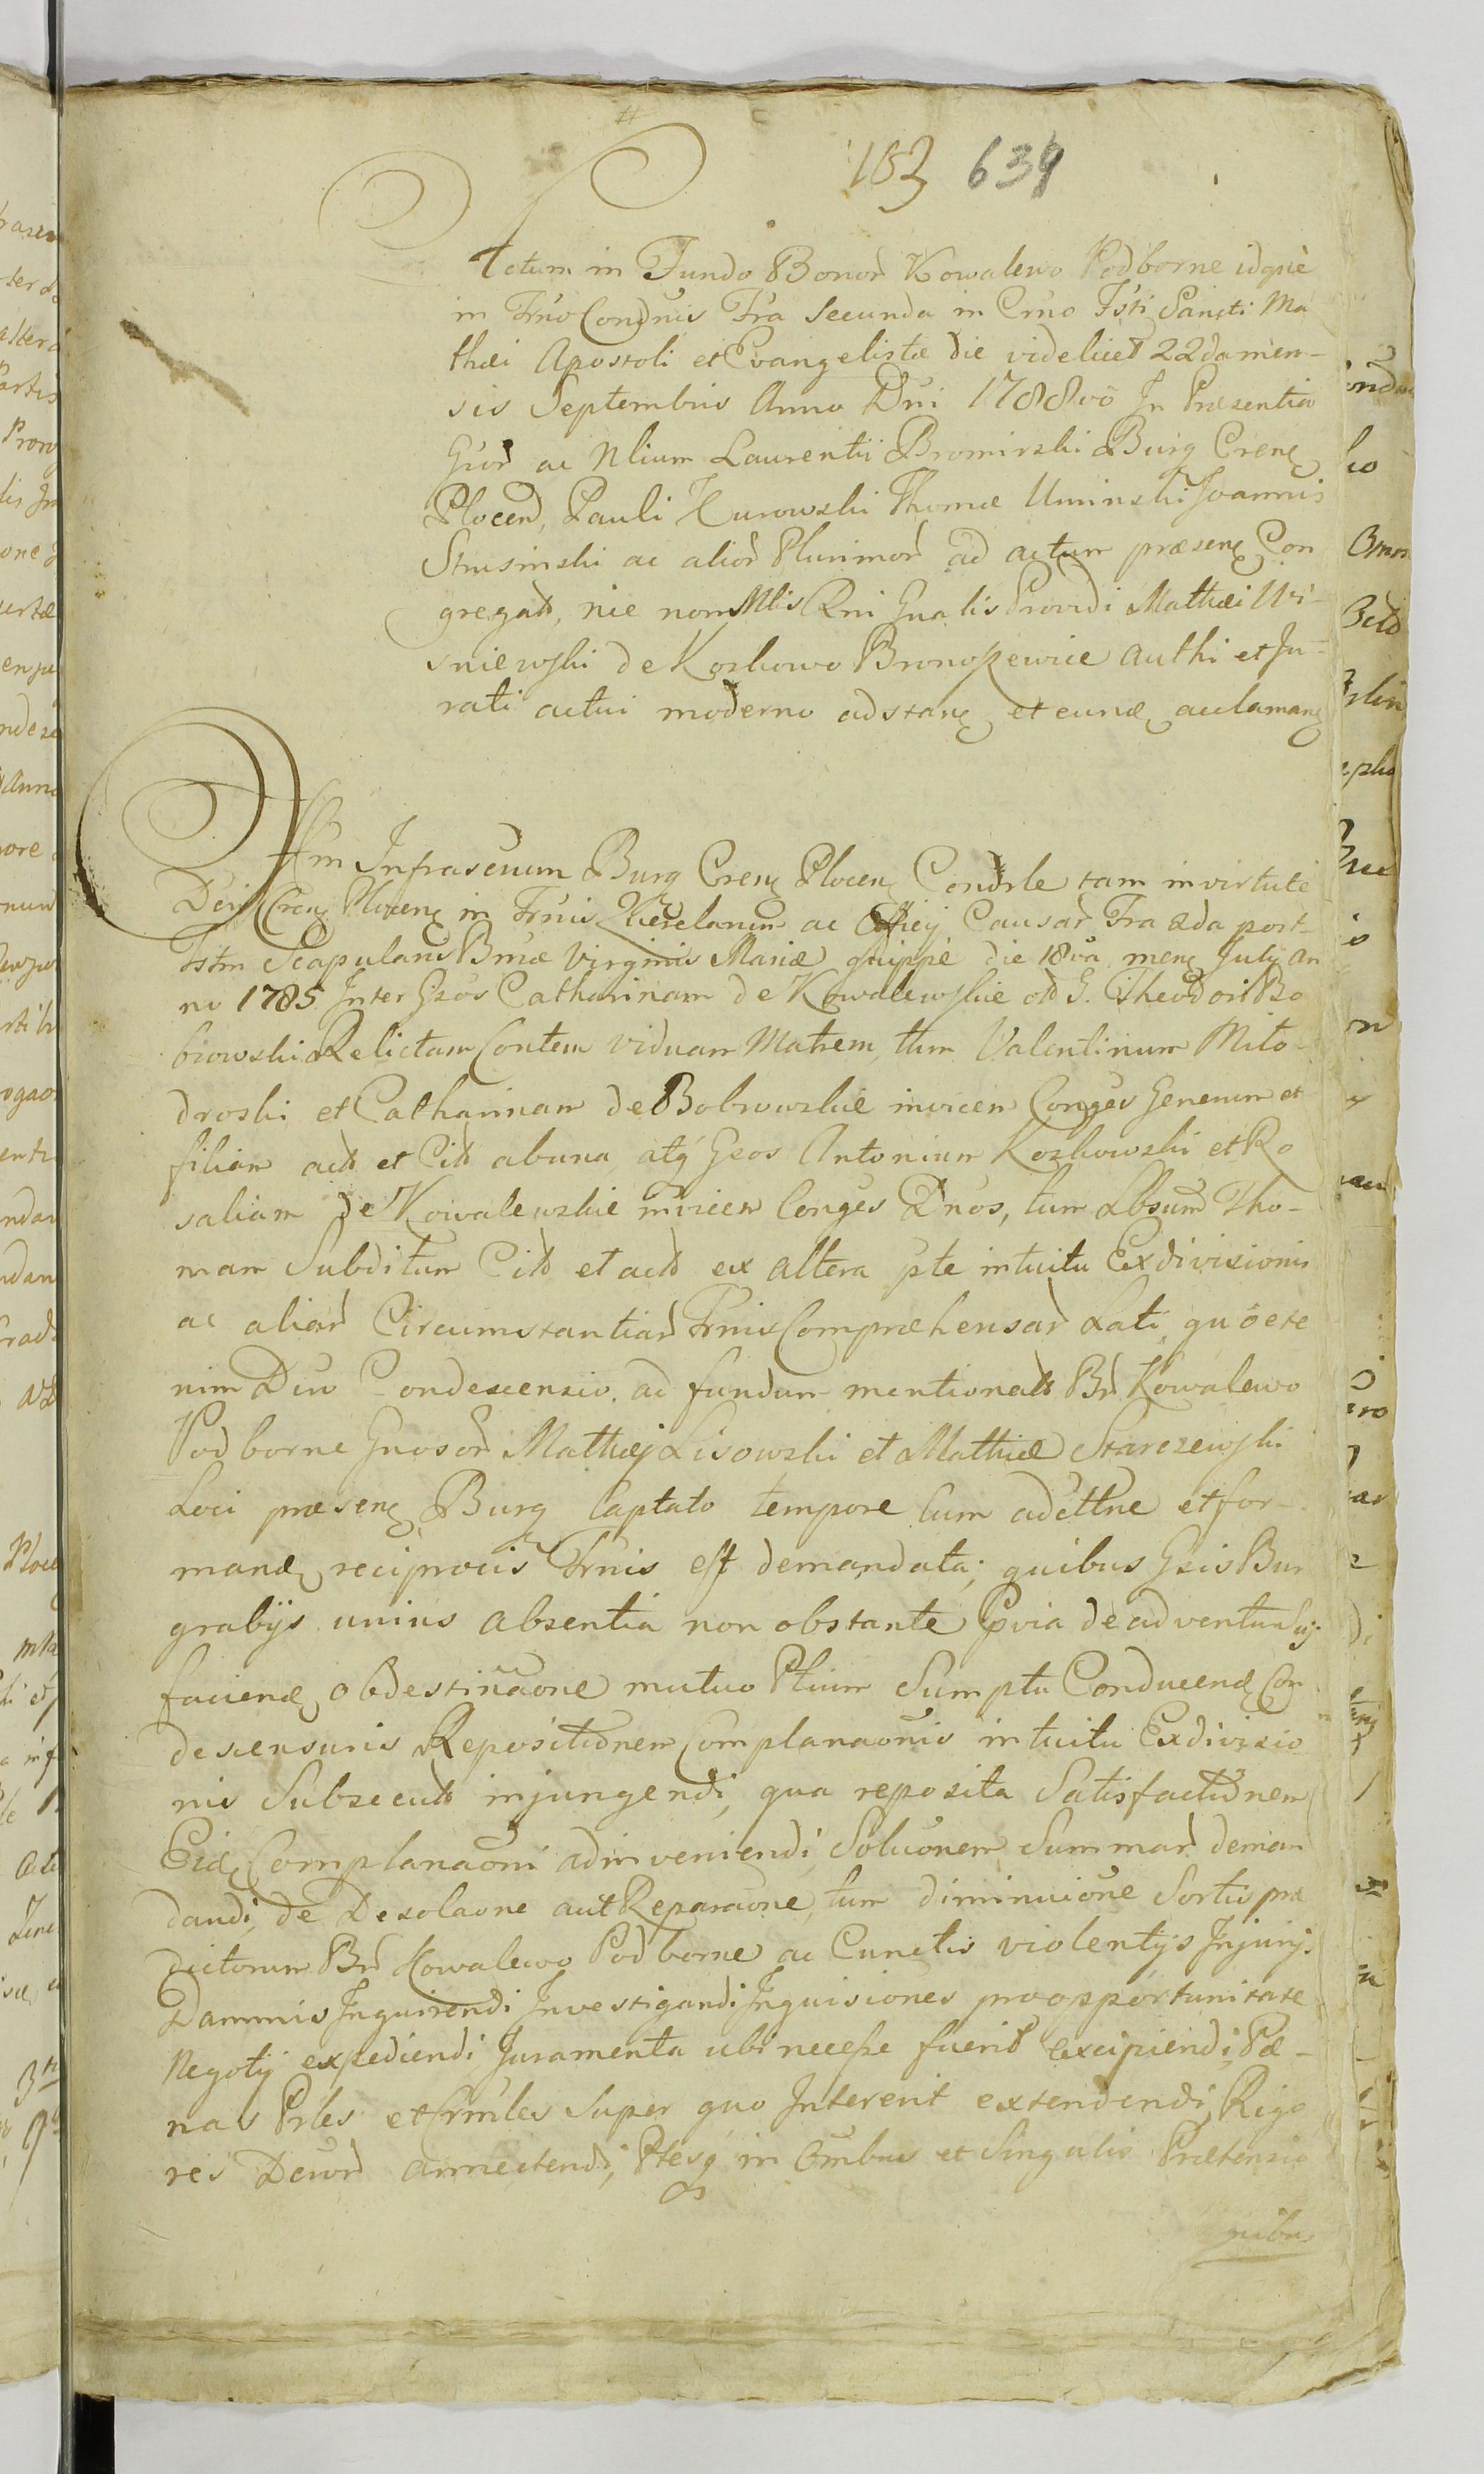 183 639
Actum in Fundo Bonor Kowalewo Podborne idque
in Trno Condnis Fra Secunda in Crno Fsti Sancti Ma
thæi Apostoli et Evangelistæ die videlicet 22da men-
sis Septembris Anno Dni 1788vo In Præsentia
Gsor ac Nlium Laurentii Bromirski Burg Crenę
Plocen, Pauli Żurowski Thomæ Uminski Joannis
Strusinski ac alior Plurimor ad actum præsenę Con
gregat, nec non Mlis Rni Gnalis Providi Mathæi Wi-
sniewski de Kozkowo Bronoszewice authi et Ju-
rati actui moderno adstanę et eundę acclamanę
Jūm Infrascrium Burg Crenę Plocenę Condrle tam in virtute
Dei Crenę Plocenę in Trnis Querelarum ac Officij Causar Fra 2da post
Fstm Scapularis Bmæ Virginis Mariæ quippe die 18va menę July An
no 1785 Inter Gsos Catharinam de Kowalewskie olt G. Theodori Bo
browski Relictam Contem viduam Matrem, tum Valentinum Mito-
droski et Catharinam de Bobrowskie invicem Conges Generum et
filiam act et Cit ab una atq Gsos Antonium Kozkowski et Ro
saliam de Kowalewskie invicem Conges Dnos, tum Absum Tho-
mam Subditum Cit et act ex altera pte intuitu Exdivisionis
ac aliar Circumstantiar Trnis Compræhensar Lati quo ete
nim Dcto Condescensio ad fundum mentionat Br Kowalewo
Podborne Gnosor Mathæj Lisowski et Mathiæ Starczewski
Loci præsenę Burg Captato tempore Cum adcttne et for-
mandę reciprocis Trnis est demandata; quibus Gsis Bur
grabijs unius absentia non obstante Pvia de adventu Sui
faciendę obdestinaone mutuo Ptium Sumptu Conducendę Con
descensuris Repositionem Complanaonis intuitu Exdivisio
nis Subsecut injungendi, qua reposita Satisfactionem
Eidę Complanaoni adinveniendi, Soluonem Summar deman
dandi, de Desolaone aut Reparaone, tum diminuione Sortis præ
dictorum Br Kowalewo Podborne ac Cunctis violentijs Injurij
Damnis Inquirendi Investigandi Inquisiones pro opportunitate
Negotij expediendi Juramenta ubi necesse fuerit excipiendi, Pæ-
nas Prles et Crmles Super quo Intererit extendendi, Rigo
res Dcror annectendi, Ptesq in Omibus et Singulis Prætensio
nibus